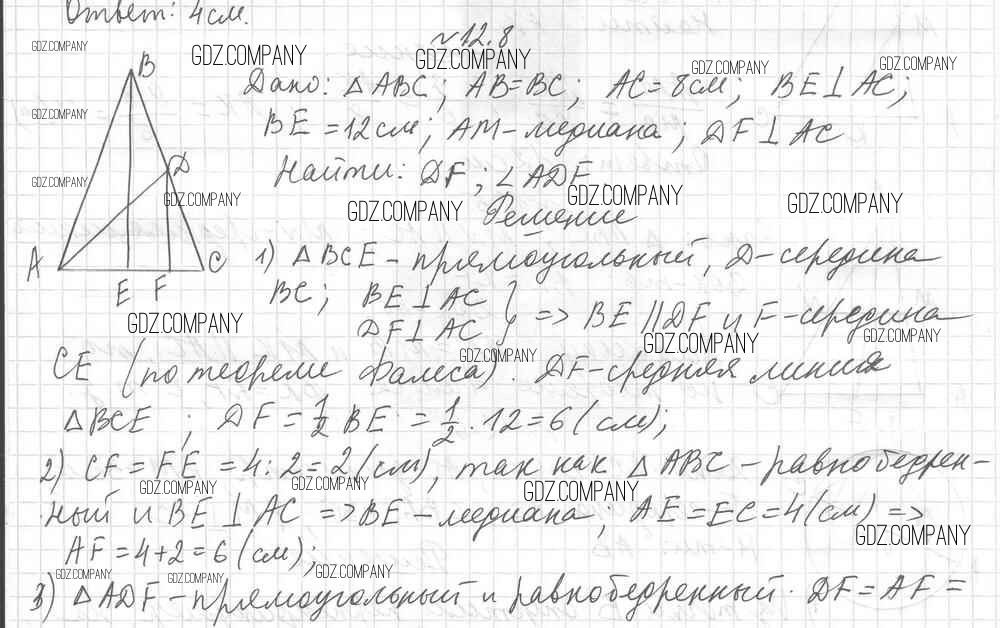 Ответ: 4 см.
№ 12.8
GDZ.COMPANY GDZ.COMPANY GDZ.COMPANY GDZ.COMPANY GDZ.COMPANY
B
Дано: △ABC; AB=BC; AC=8см; BE⊥AC;
GDZ.COMPANY
BE=12см; AM-медиана; DF⊥AC
D
Найти: DF; ∠ADF
GDZ.COMPANY GDZ.COMPANY GDZ.COMPANY GDZ.COMPANY GDZ.COMPANY
Решение
A E F C
1) △BCE-прямоугольный, D-середина
BC; BE⊥AC
DF⊥AC } => BE||DF и F-середина
GDZ.COMPANY GDZ.COMPANY GDZ.COMPANY GDZ.COMPANY
CE (по теореме Фалеса). DF-средняя линия
△BCE; DF=1/2 BE=1/2·12=6(см);
2) CF=FE=4:2=2(см), так как △ABC-равнобедрен-
GDZ.COMPANY GDZ.COMPANY GDZ.COMPANY
ный и BE⊥AC => BE-медиана; AE=EC=4(см) =>
GDZ.COMPANY
AF=4+2=6(см);
GDZ.COMPANY GDZ.COMPANY GDZ.COMPANY
3) △ADF-прямоугольный и равнобедренный. DF=AF=